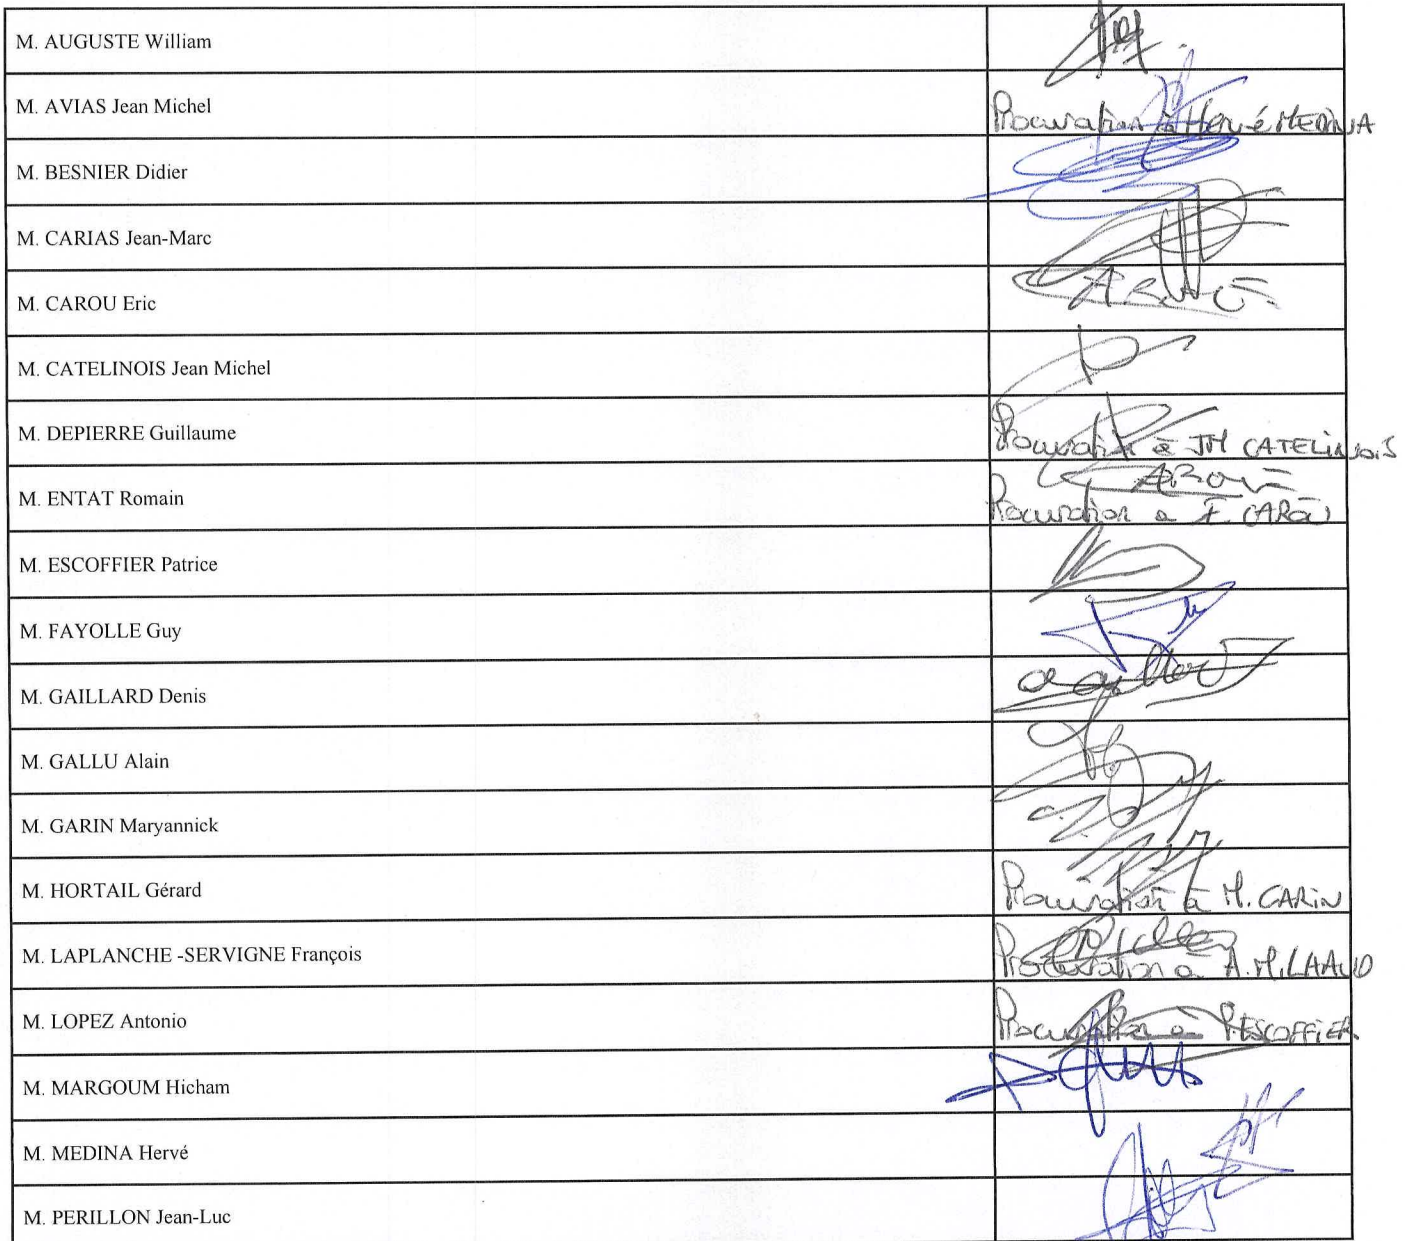 M. AUGUSTE William
M. AVIAS Jean Michel
Procuration à Hervé MEDINA
M. BESNIER Didier
M. CARIAS Jean-Marc
M. CAROU Eric
M. CATELINOIS Jean Michel
M. DEPIERRE Guillaume
Procuration à JM CATELINOIS
M. ENTAT Romain
Procuration a E. CAROU
M. ESCOFFIER Patrice
M. FAYOLLE Guy
M. GAILLARD Denis
M. GALLU Alain
M. GARIN Maryannick
M. HORTAIL Gérard
Procuration à M. GARIN
M. LAPLANCHE -SERVIGNE François
Procuration à A.M.
M. LOPEZ Antonio
Procuration à P.ESCOFFIER
M. MARGOUM Hicham
M. MEDINA Hervé
M. PERILLON Jean-Luc